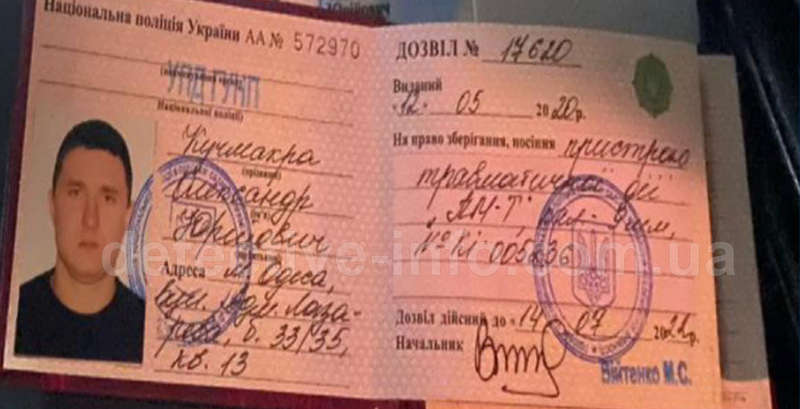 Національна поліція України АА № 572970
УПД ГУНП
Національної поліції)
Кучмакра
(прізвище)
Олександр
Юрійович
Адреса м. Одеса,
вул. Адм. Лаза-
рева, б. 33/35,
кв. 13
ДОЗВІЛ № 17620
Виданий
«12» 05 2020 р.
На право зберігання, носіння пристрою
травматичної дії
"АМ-Т", кал. 9мм,
Дозвіл дійсний до «14» 07
Начальник
Війтенко М.С.
detective-info.com.ua